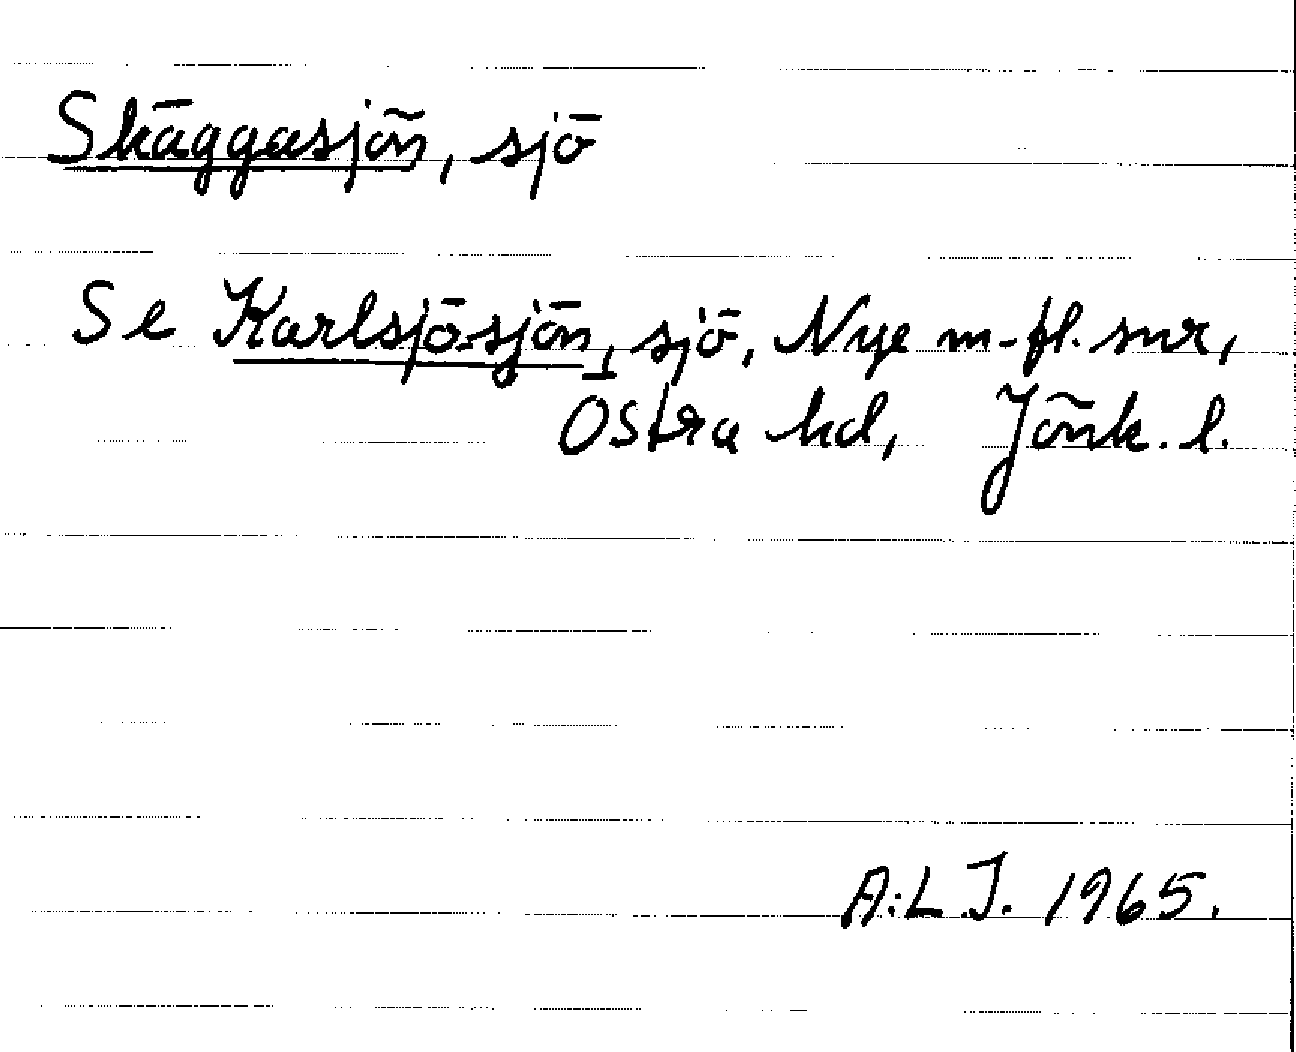 Skäggasjön, sjö
Se Karlsjösjön, sjö, Nye m.fl. snr,
Östra hd, Jönk. l.
A:L J. 1965.